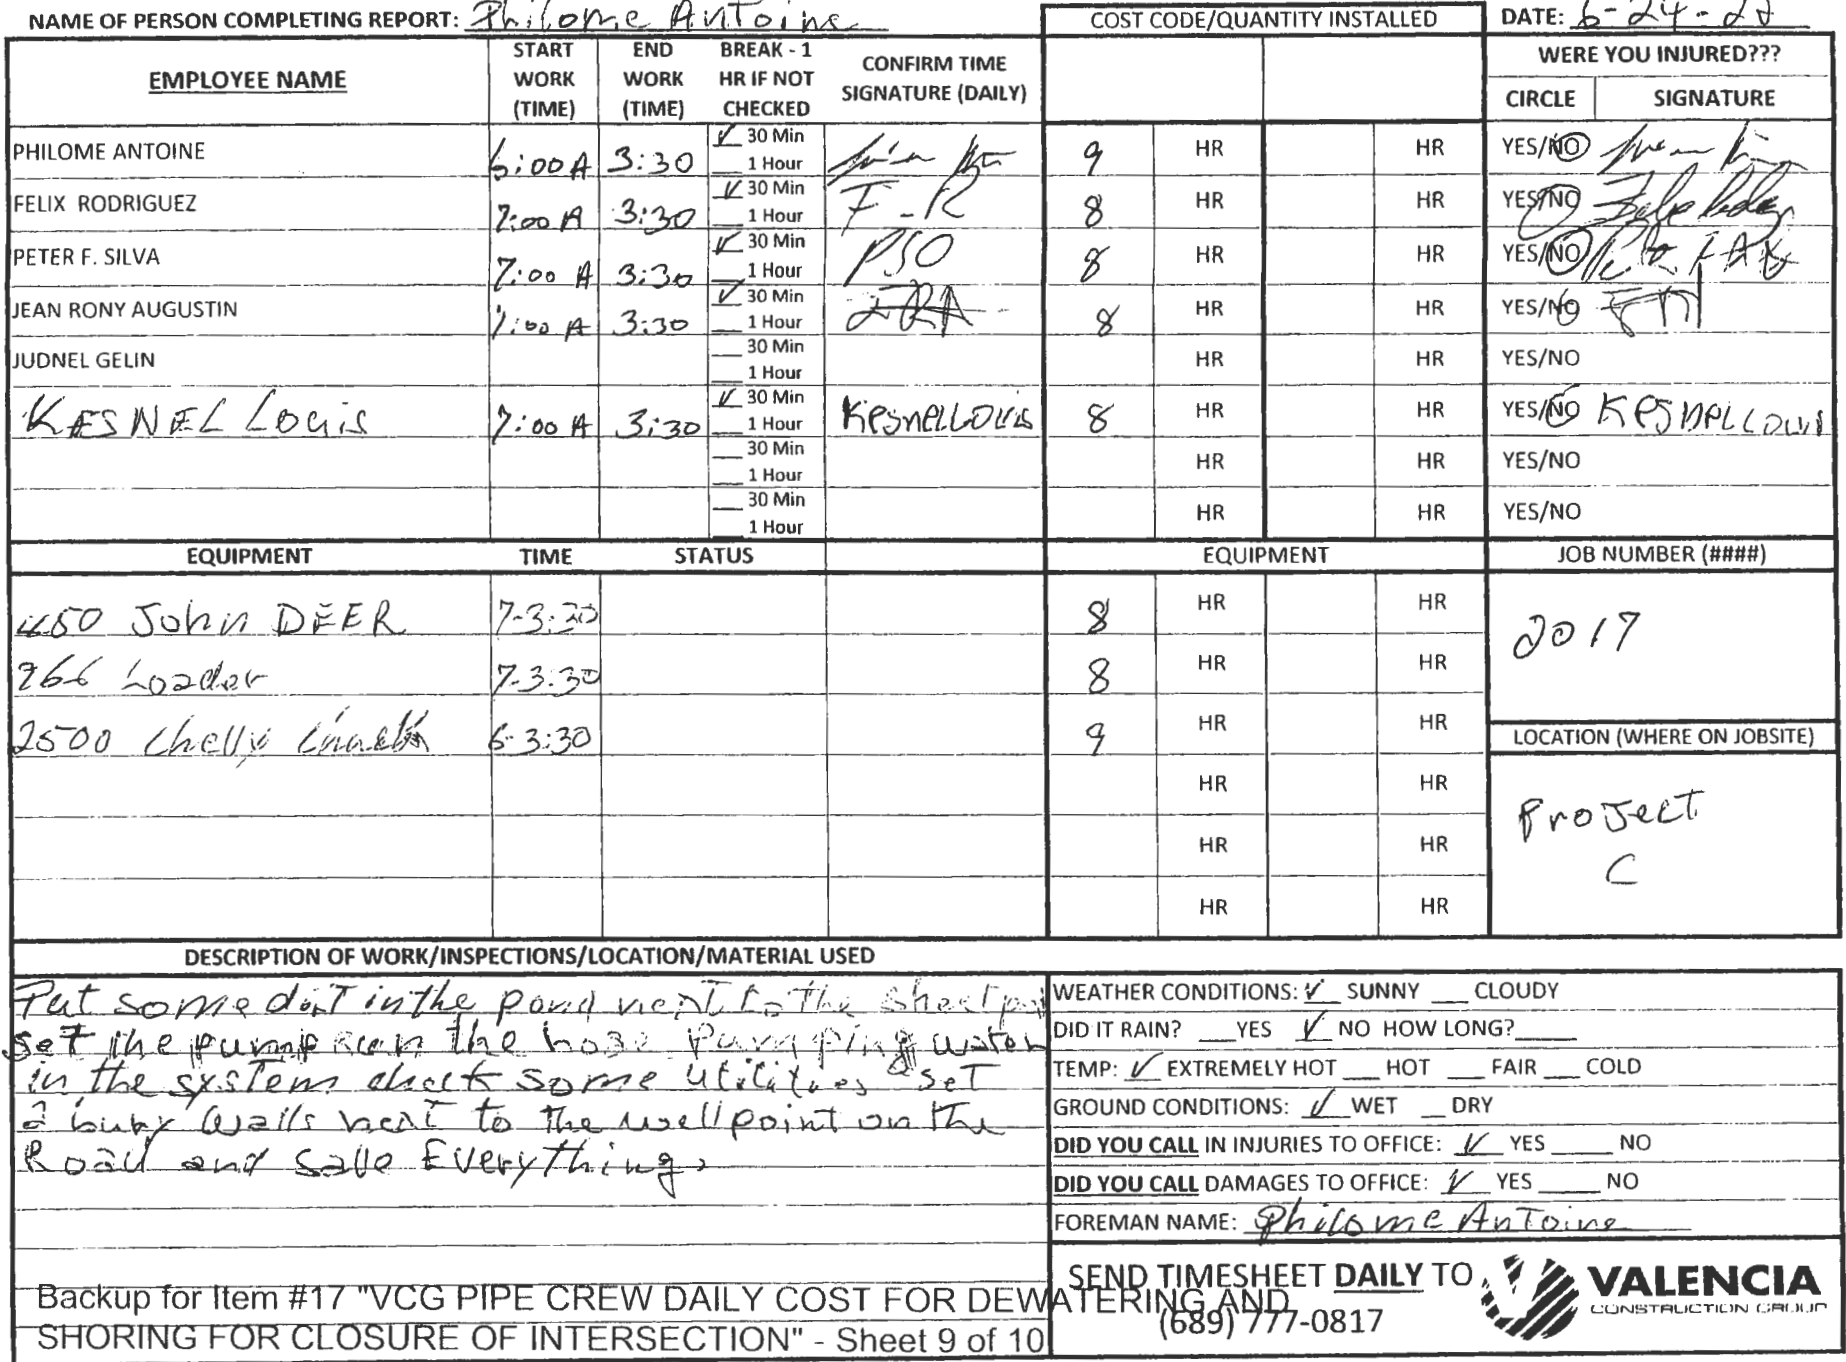 NAME OF PERSON COMPLETING REPORT: Philome Antoine COST CODE/QUANTITY INSTALLED DATE: 6-24-22
EMPLOYEE NAME START WORK (TIME) END WORK (TIME) BREAK - 1 HR IF NOT CHECKED CONFIRM TIME SIGNATURE (DAILY) WERE YOU INJURED???
CIRCLE SIGNATURE
PHILOME ANTOINE 6:00 A 3:30 ✓ 30 Min 9 HR HR YES/NO
1 Hour
FELIX RODRIGUEZ 7:00 A 3:30 ✓ 30 Min F-R 8 HR HR YES/NO
1 Hour
PETER F. SILVA 7:00 A 3:30 ✓ 30 Min PSO 8 HR HR YES/NO
1 Hour
JEAN RONY AUGUSTIN 7:00 A 3:30 ✓ 30 Min JRA 8 HR HR YES/NO
1 Hour
JUDNEL GELIN 30 Min HR HR YES/NO
1 Hour
KESNEL Louis 7:00 A 3:30 ✓ 30 Min KesneLLOUis 8 HR HR YES/NO KesneLLOUis
1 Hour
30 Min HR HR YES/NO
1 Hour
30 Min HR HR YES/NO
1 Hour
EQUIPMENT TIME STATUS EQUIPMENT JOB NUMBER (####)
450 John DEER 7-3:30 8 HR HR 2017
266 Loader 7-3:30 8 HR HR
2500 Chevy 6-3:30 9 HR HR LOCATION (WHERE ON JOBSITE)
HR HR Project
HR HR C
HR HR
DESCRIPTION OF WORK/INSPECTIONS/LOCATION/MATERIAL USED
Put some dirt in the pond next to the Sheet
set the pump run the hose pumping water
in the system check some utilities set
next to the wellpoint on the
Road and save Everything.
WEATHER CONDITIONS: ✓ SUNNY __ CLOUDY
DID IT RAIN? __ YES ✓ NO HOW LONG? ____
TEMP: ✓ EXTREMELY HOT __ HOT __ FAIR __ COLD
GROUND CONDITIONS: ✓ WET __ DRY
DID YOU CALL IN INJURIES TO OFFICE: ✓ YES ____ NO
DID YOU CALL DAMAGES TO OFFICE: ✓ YES ____ NO
FOREMAN NAME: Philome Antoine
SEND TIMESHEET DAILY TO
(689) 777-0817
VALENCIA
CONSTRUCTION GROUP
Backup for Item #17 "VCG PIPE CREW DAILY COST FOR DEWATERING AND
SHORING FOR CLOSURE OF INTERSECTION" - Sheet 9 of 10